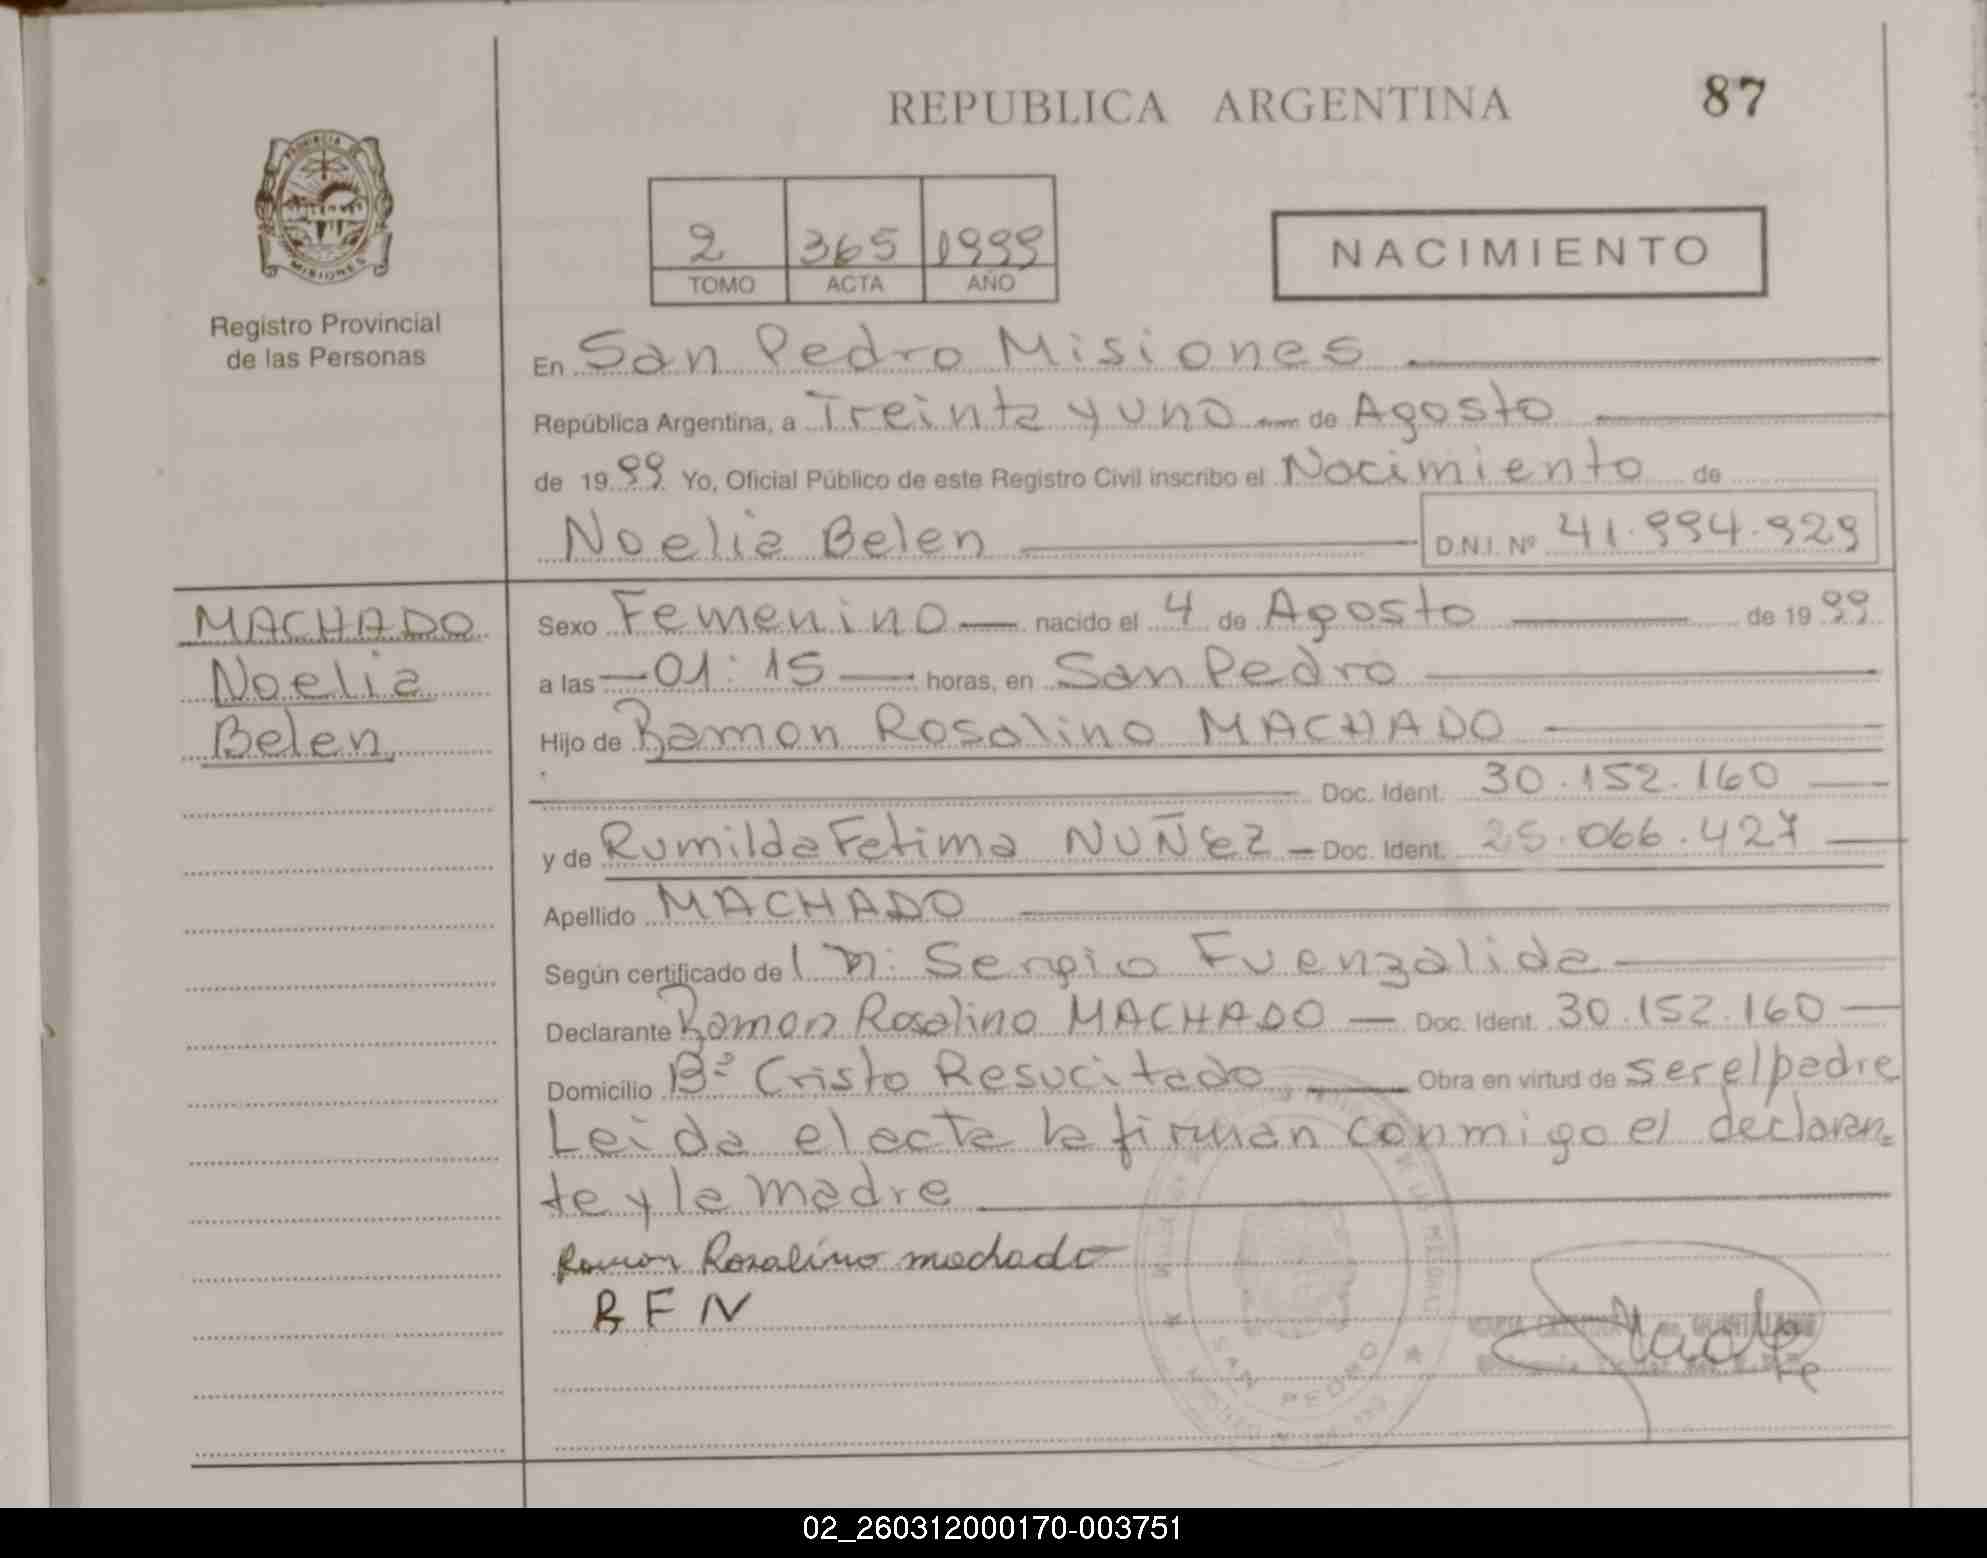 REPUBLICA ARGENTINA
87
PROVINCIA DE
MISIONES
Registro Provincial
de las Personas
2 365 1999
TOMO ACTA AÑO
NACIMIENTO
En San Pedro Misiones
República Argentina, a Treinta y uno de Agosto
de 1999 Yo, Oficial Público de este Registro Civil inscribo el Nacimiento de
Noelia Belen D.N.I. Nº 41.994.929
MACHADO
Noelia
Belen
Sexo Femenino nacido el 4 de Agosto de 1999
a las 01:15 horas, en San Pedro
Hijo de Ramon Rosalino MACHADO
Doc. Ident. 30.152.160
y de Rumilda Fatima NUÑEZ Doc. Ident. 25.066.427
Apellido MACHADO
Según certificado de Sergio Fuenzalida
Declarante Ramon Rosalino MACHADO Doc. Ident. 30.152.160
Domicilio Bº Cristo Resucitado Obra en virtud de ser el padre
Leida el acta la firman conmigo el declaran=
te y la madre
Ramon Rosalino machado
R F N
SAN PEDRO
02_260312000170-003751